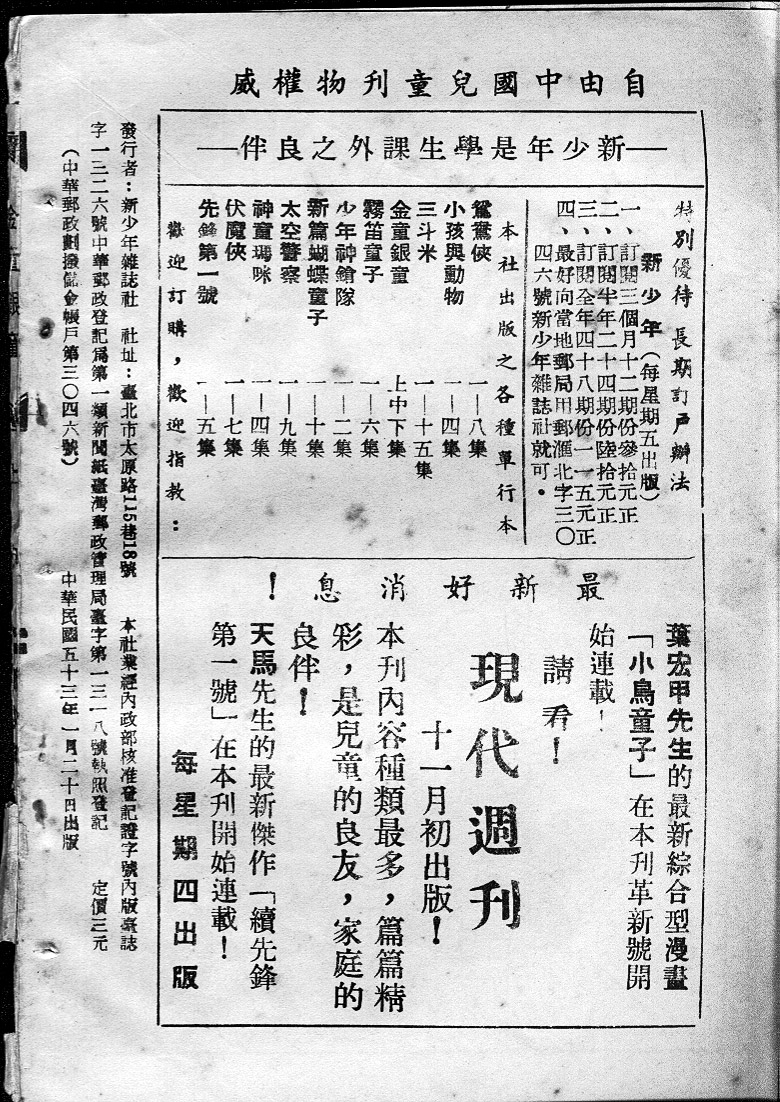 自由中國兒童刊物權威
—新少年是學生課外之良伴—
特別優待 長期訂戶辦法
新少年（每星期五出版）
一、訂閱三個月十二期份參拾元正
二、訂閱半年二十四期份陸拾元正
三、訂閱全年四十八期份一一五元正
四、最好向當地郵局用郵滙北字三〇
四六號新少年雜誌社就可。
本社出版之各種單行本
鴛鴦俠 一—八集
小孩與動物 一—四集
三斗米 一—十五集
金童銀童 上中下集
霧笛童子 一—六集
少年神鎗隊 一—二集
新篇蝴蝶童子 一—十集
太空警察 一—九集
神童瑪咪 一—四集
伏魔俠 一—七集
先鋒第一號 一—五集
歡迎訂購，歡迎指教：
最新好消息！
葉宏甲先生的最新綜合型漫畫
「小鳥童子」在本刊革新號開
始連載！
請看！
現代週刊
十一月初出版！
本刊內容種類最多，篇篇精
彩，是兒童的良友，家庭的
良伴！
天馬先生的最新傑作「續先鋒
第一號」在本刊開始連載！
每星期四出版
發行者：新少年雜誌社 社址：臺北市太原路115巷18號 本社業經內政部核准登記證字號內版臺誌
字一三二六號中華郵政登記爲第一類新聞紙臺灣郵政管理局臺字第一三一八號執照登記 定價三元
（中華郵政劃撥儲金帳戶第三〇四六號） 中華民國五十三年一月二十日出版